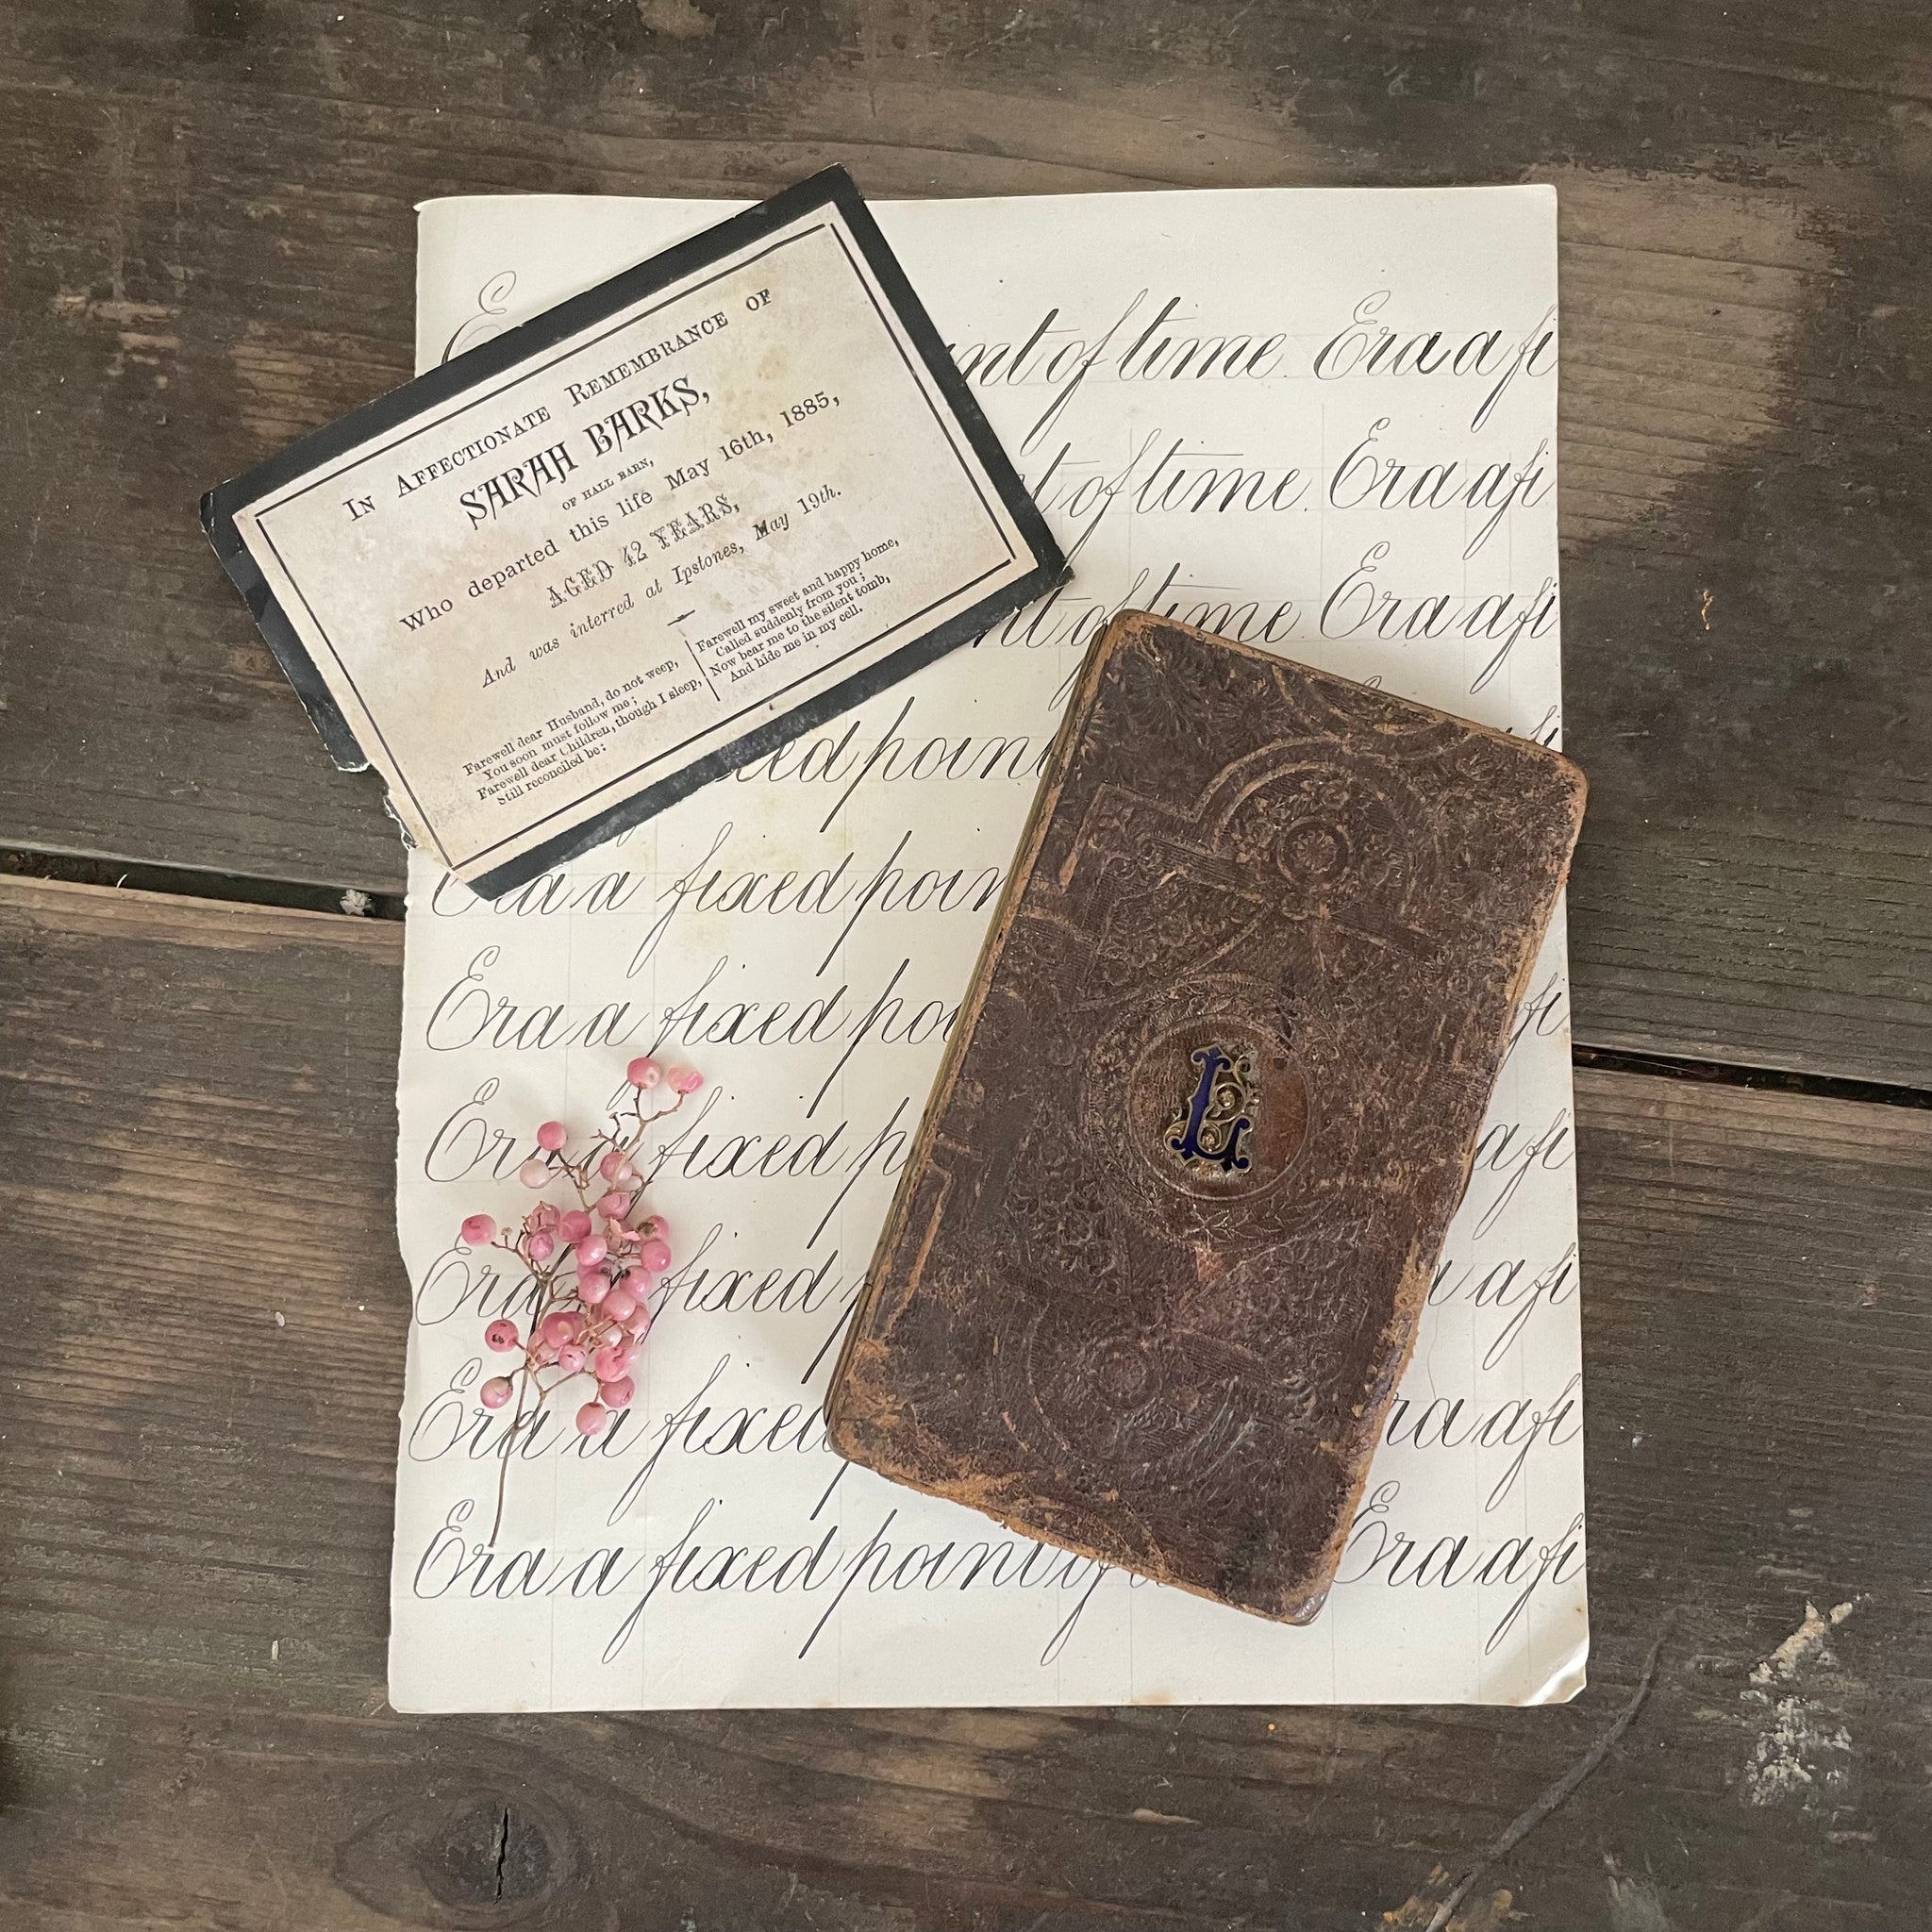 IN AFFECTIONATE REMEMBRANCE OF
SARAH BARKS,
OF HALL BARN,
Who departed this life May 16th, 1885,
AGED 42 YEARS,
And was interred at Ipstones, May 19th.
Farewell dear Husband, do not weep,
You soon must follow me;
Farewell dear Children, though I sleep,
Still reconciled be:
Farewell my sweet and happy home,
Called suddenly from you;
Now bear me to the silent tomb,
And hide me in my cell.
of time. Era a fi
of time. Era a fi
of time. Era a fi
fixed point
Era a fixed point
Era a fixed po
Era a fixed p a fi
Era a fixed p a fi
Era a fixed Era a fi
Era a fixed point of Era a fi
L